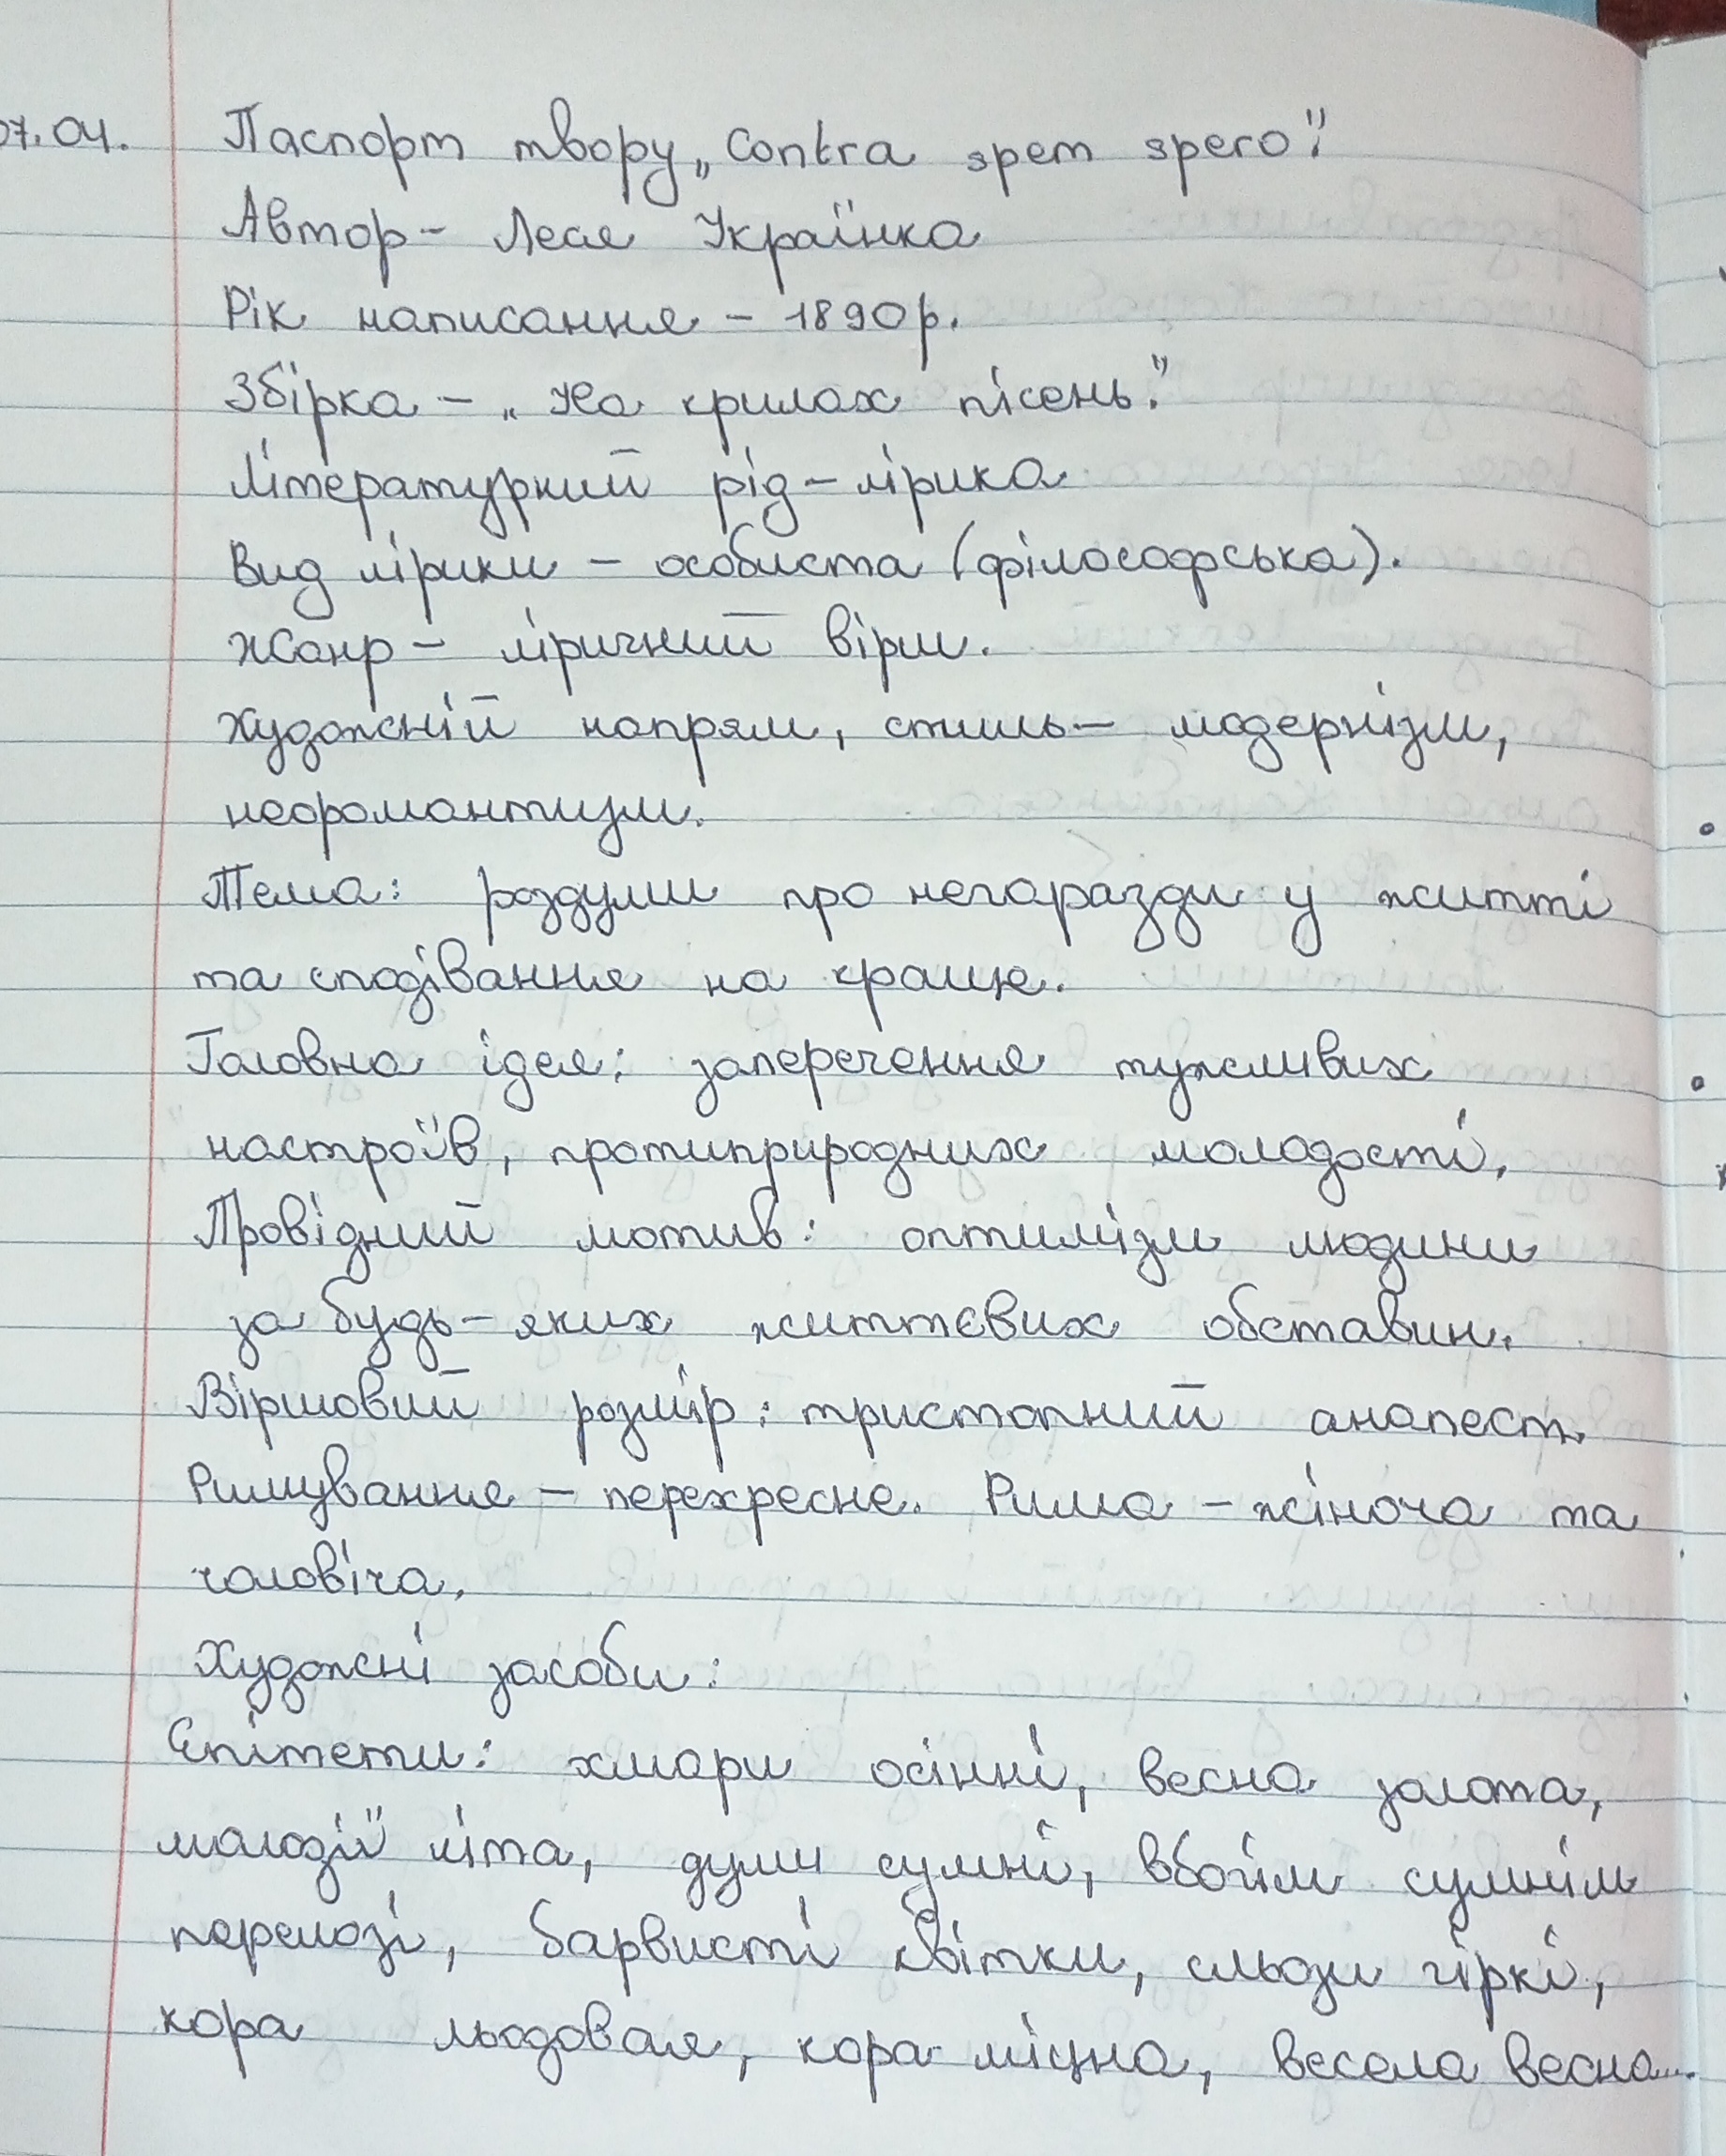 07.04. Паспорт твору „Contra spem spero".
Автор - Леся Українка
Рік написання - 1890 р.
Збірка - „На крилах пісень".
Літературний рід - лірика
Вид лірики - особиста (філософська).
Жанр - ліричний вірш.
Художній напрям, стиль - модернізм,
неоромантизм.
Тема: роздуми про негаразди у житті
та сподівання на краще.
Головна ідея: заперечення тужливих
настроїв, протиприродних молодості.
Провідний мотив: оптимізм людини
за будь-яких життєвих обставин.
Віршовий розмір: тристопний анапест.
Римування - перехресне. Рима - жіноча та
чоловіча.
Художні засоби:
Епітети: хмари осінні, весна золота,
молодії літа, думи сумні, вбогім сумнім
перелозі, барвисті квітки, сльози гіркі,
кора льодовая, кора міцна, весела весна...